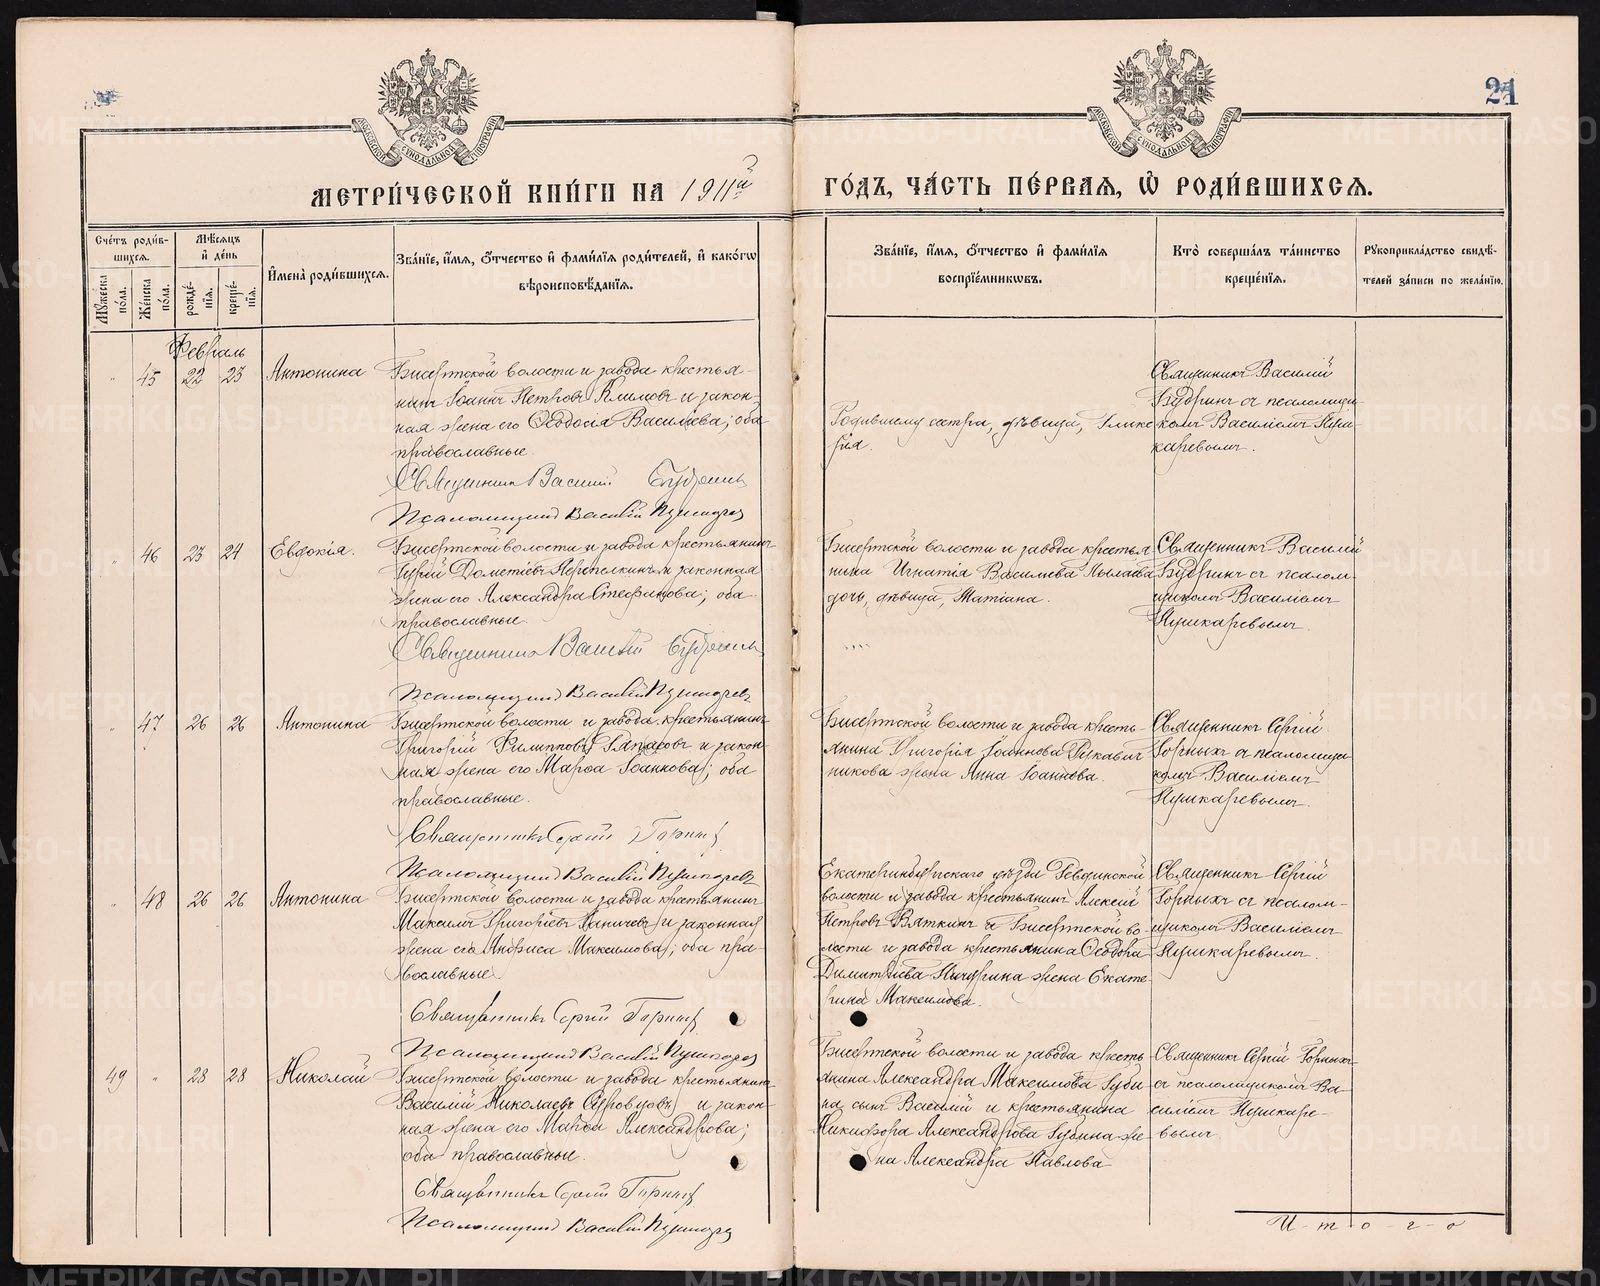 21
МОСКОВСКОЙ СѴНОДАЛЬНОЙ ТИПОГРАФІИ
МОСКОВСКОЙ СѴНОДАЛЬНОЙ ТИПОГРАФІИ
МЕТРИ́ЧЕСКОЙ КНИ́ГИ НА 1911й
ГО́ДЪ, ЧА́СТЬ ПЕ́РВАѦ, Ѡ РОДИ́ВШИХСѦ.
Сче́тъ роди́в-
шихсѧ.
Мꙋ́жеска по́ла.
Же́нска по́ла.
Мѣ́сѧцъ
и҆ де́нь
рожде́-
нїѧ.
креще́-
нїѧ.
И҆мена̀ роди́вшихсѧ.
Зва́нїе, и҆́мѧ, ѻ҆́тчество и҆ фами́лїѧ роди́телей, и҆ како́гѡ
вѣроисповѣ́данїѧ.
Зва́нїе, и҆́мѧ, ѻ҆́тчество и҆ фами́лїѧ
воспрїе́мникѡвъ.
Кто̀ соверша́лъ та́инство
креще́нїѧ.
Рꙋкоприкла́дство свидѣ́-
телей за́писи по жела́нїю.
Февраль
" 45 22 23 Антонина
Бисертской волости и завода крестья-
нинъ Іоаннъ Петровъ Климовъ и закон-
ная жена его Ѳеодосія Василіева; оба
православные.
Священникъ Василій Будринъ
Псаломщикъ Василій Пушкаревъ
Родившему сестра, дѣвица, Глике-
рія.
Священникъ Василій
Будринъ съ псаломщи-
комъ Василіемъ Пуш-
каревымъ.
" 46 23 24 Евдокія.
Бисертской волости и завода крестьянинъ
Гурій Дометіевъ Перепелкинъ и законная
жена его Александра Стефанова; оба
православные.
Священникъ Василій Будринъ
Псаломщикъ Василій Пушкаревъ
Бисертской волости и завода крестья-
нина Игнатія Василіева
дочь, дѣвица, Татіана.
Священникъ Василій
Будринъ съ псалом-
щикомъ Василіемъ
Пушкаревымъ.
" 47 26 26 Антонина
Бисертской волости и завода крестьянинъ
Григорій Филипповъ и закон-
ная жена его Марѳа Іоаннова; оба
православные.
Священникъ Сергій Горныхъ
Псаломщикъ Василій Пушкаревъ
Бисертской волости и завода кресть-
янина Григорія Іоаннова Рукавиш-
никова жена Анна Іоаннова.
Священникъ Сергій
Горныхъ съ псаломщи-
комъ Василіемъ
Пушкаревымъ.
" 48 26 26 Антонина
Бисертской волости и завода крестьянинъ
Максимъ Григоріевъ и законная
жена его Анфиса Максимова; оба пра-
вославные.
Священникъ Сергій Горныхъ
Псаломщикъ Василій Пушкаревъ
Екатеринбургскаго уѣзда Ревдинской
волости и завода крестьянинъ Алексій
Петровъ Вяткинъ и Бисертской во-
лости и завода крестьянина Ѳеодора
Димитріева жена Екате-
рина Максимова.
Священникъ Сергій
Горныхъ съ псалом-
щикомъ Василіемъ
Пушкаревымъ.
49 " 28 28 Николай
Бисертской волости и завода крестьянинъ
Василій Николаевъ Суровцовъ и закон-
ная жена его Марѳа Александрова;
оба православные.
Священникъ Сергій Горныхъ
Псаломщикъ Василій Пушкаревъ
Бисертской волости и завода кресть-
янина Александра Максимова Губи-
на сынъ Василій и крестьянина
Никифора Александрова Губина же-
на Александра Павлова
Священникъ Сергій Горныхъ
съ псаломщикомъ Ва-
силіемъ Пушкаре-
вымъ.
И-т-о-г-о
METRIKI.GASO-URAL.RU